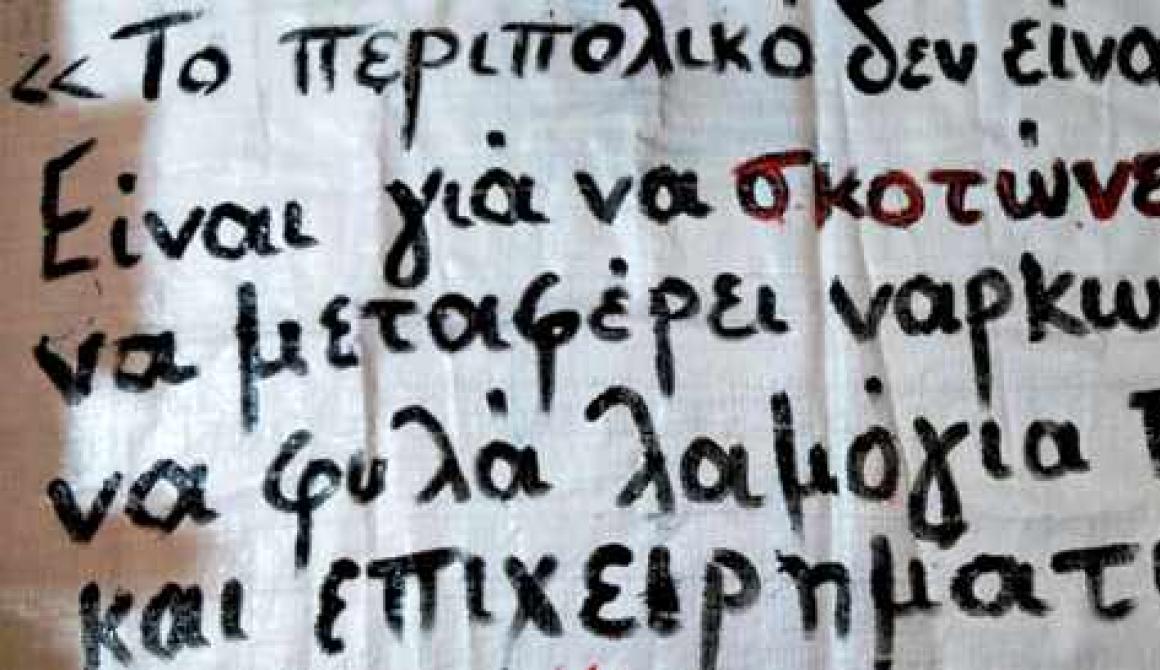 « Το περιπολικό δεν είνα
Είναι γιά να σκοτώνε
να μεταφέρει ναρκω
να φυλά λαμόγια τ
και επιχειρηματι